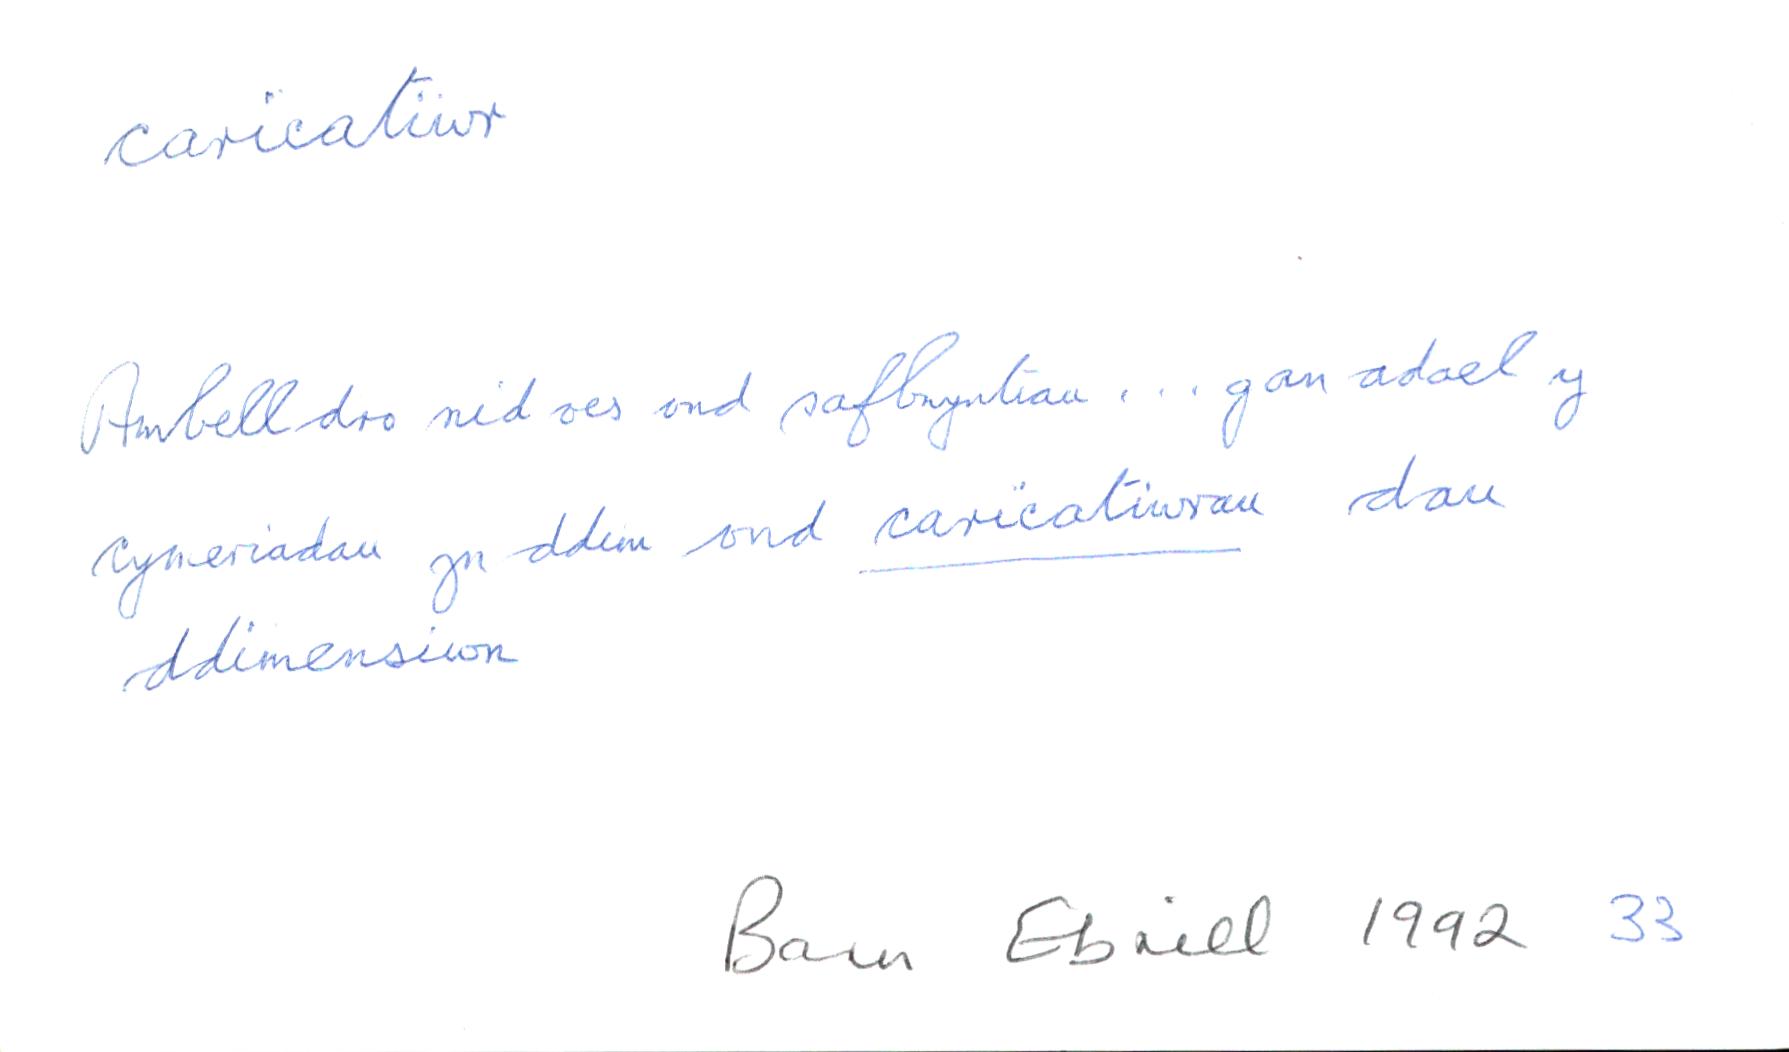 carïcatïwr
Ambell dro nid oes ond safbwyntiau . . . gan adael y
cymeriadau yn ddim ond carïcatiwrau dau
ddimensiwn
Barn Ebrill 1992 33